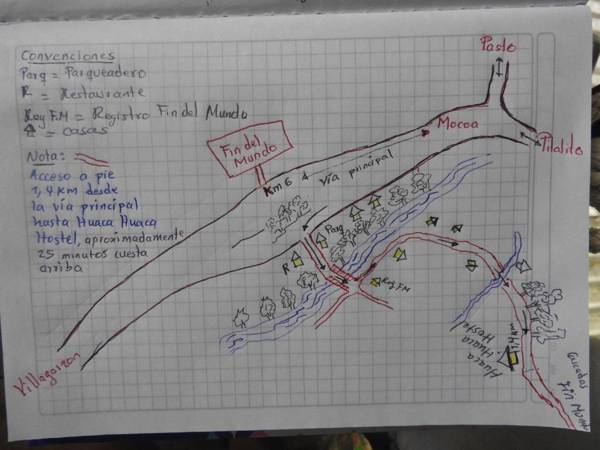 Convenciones
Parq = Parqueadero
R = Restaurante
Reg F.M = Registro Fin del Mundo
= casas
Nota:
Acceso a pie
1,4 Km desde
la vía principal
hasta Huaca Huaca
Hostel, aproximadamente
25 minutos cuesta
arriba
Pasto
Mocoa
Pitalito
Fin del
Mundo
Km 6
vía principal
Parq
R
Reg F.M
Huaca
Huaca
Hostel
1,4 Km
Villagarzon
Fin Mundo